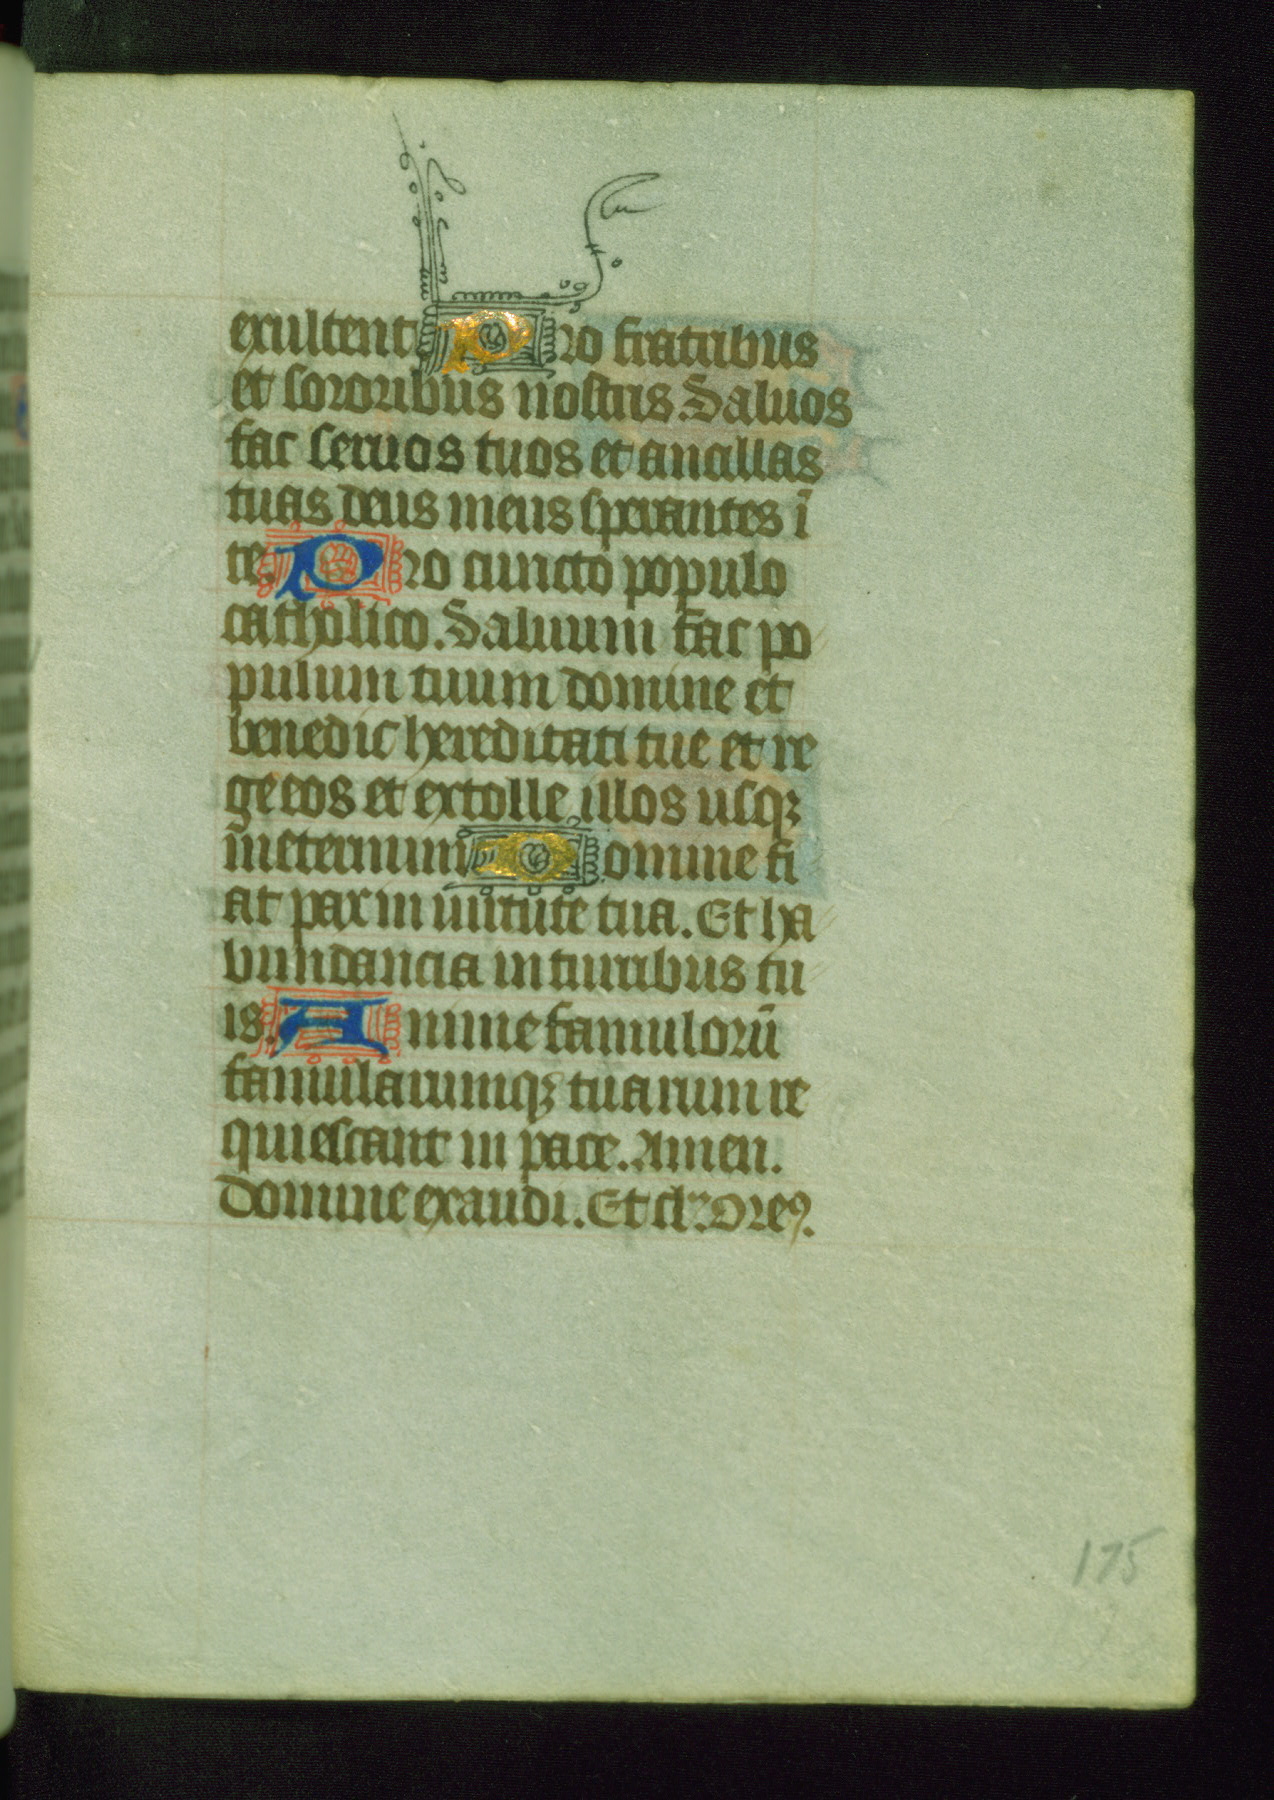 exultent Pro fratribus
et sororibus nostris. Saluos
fac seruos tuos et ancillas
tuas deus meus sperantes ī
te. Pro cuncto populo
catholico. Saluum fac po
pulum tuum domine et
benedic hereditati tue et re
ge eos et extolle illos usqꝫ
in eternum Domine fi
at pax in uirtute tua. Et ha
bundancia in turribus tu
is. Anime famulorū
famularumqꝫ tuarum re
quiescant in pace. Amen.
Domine exaudi. Et cl'. Oreꝯ.
175